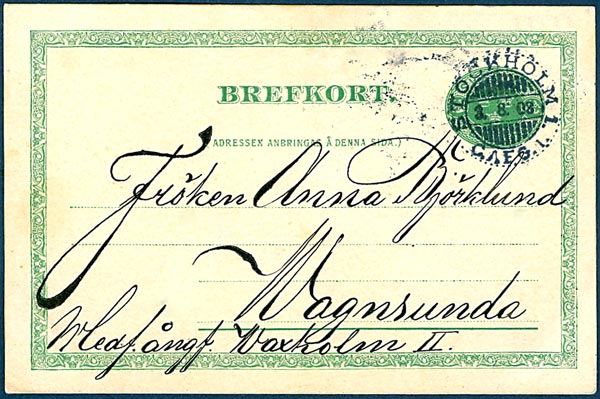 BREFKORT.
(ADRESSEN ANBRINGAS Å DENNA SIDA.)
STOCKHOLM 1
3. 8. 03
Fröken Anna Björklund
Wagnsunda
Medf. ångf. Waxholm II.